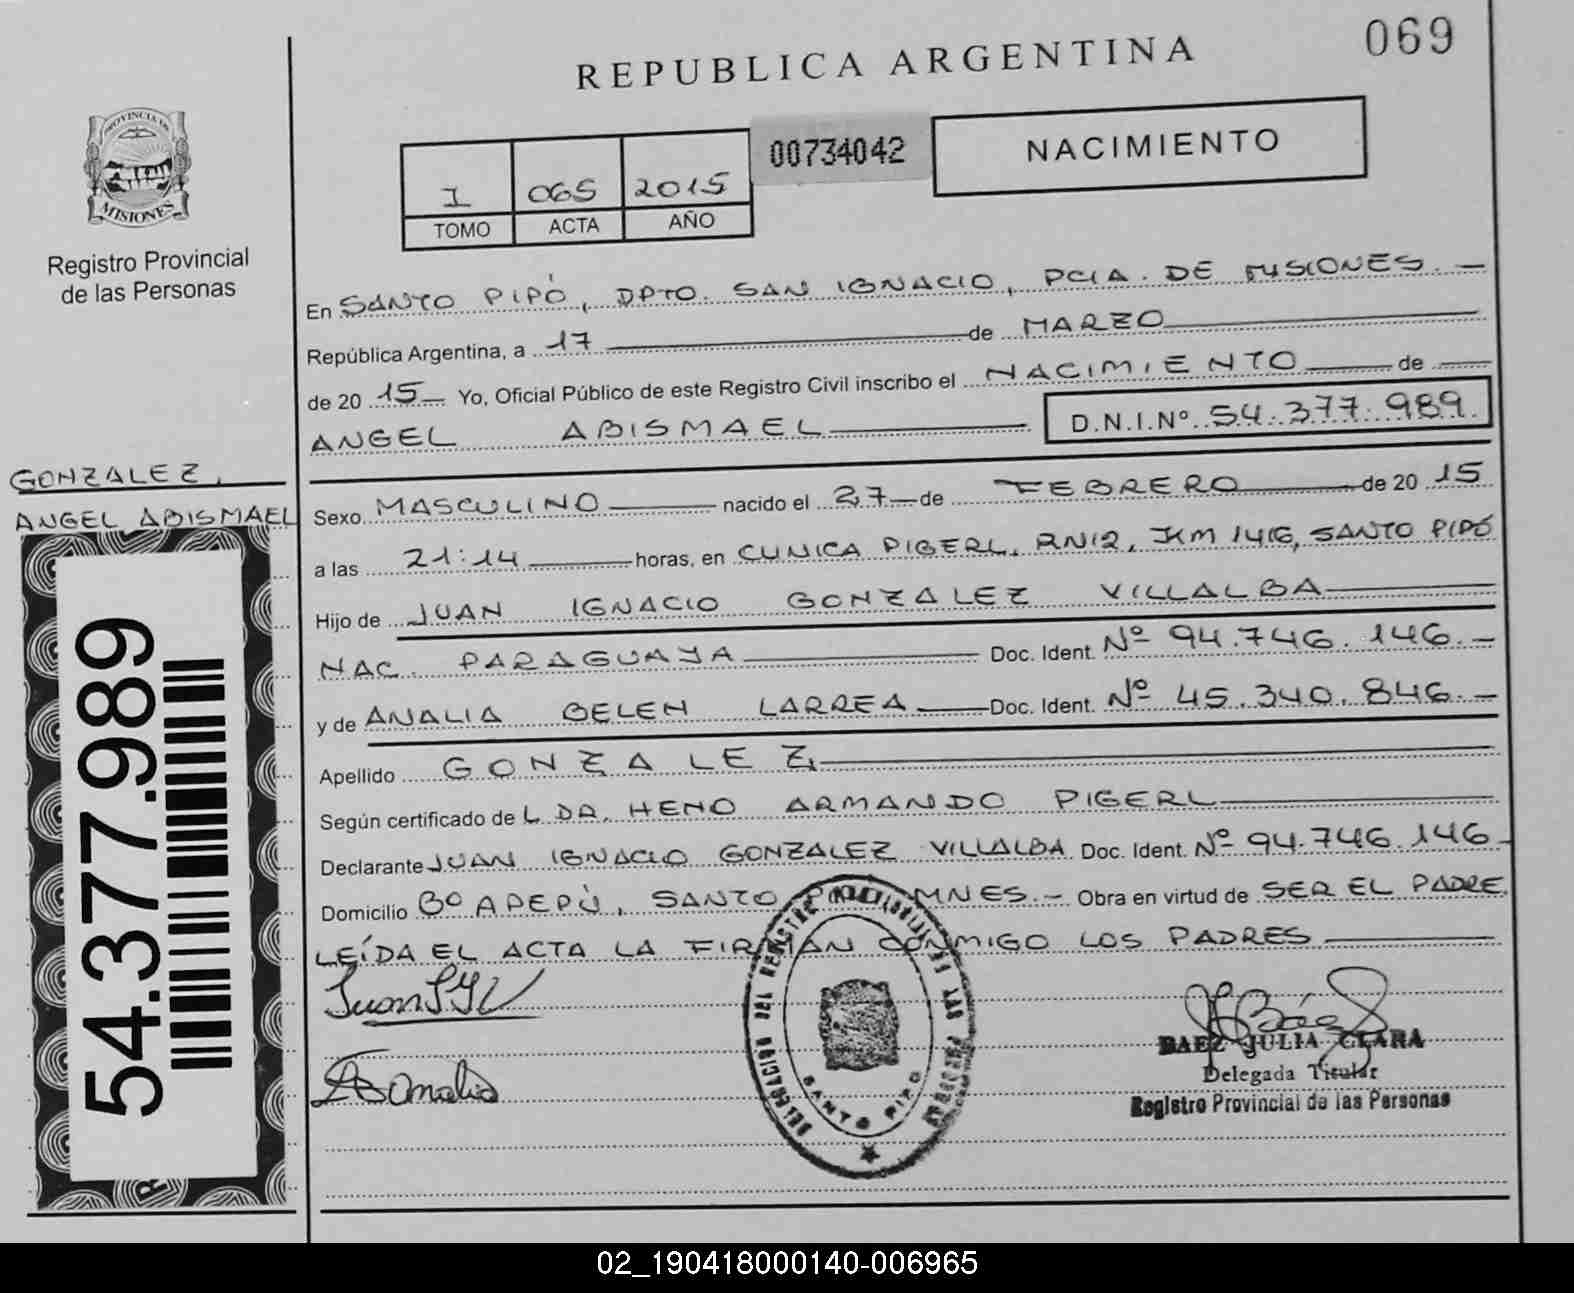 069
REPUBLICA ARGENTINA
PROVINCIA DE
MISIONES
Registro Provincial
de las Personas
I 065 2015
TOMO ACTA AÑO
00734042
NACIMIENTO
En SANTO PIPÓ, DPTO. SAN IGNACIO, PCIA. DE MISIONES.-
República Argentina, a 17 de MARZO
de 20 15 Yo, Oficial Público de este Registro Civil inscribo el NACIMIENTO de
ANGEL ABISMAEL D.N.I.Nº 54.377.989
GONZALEZ,
ANGEL ABISMAEL
54.377.989
Sexo MASCULINO nacido el 27 de FEBRERO de 20 15
a las 21:14 horas, en CLINICA PIGERL, RN12, KM 1416, SANTO PIPÓ
Hijo de JUAN IGNACIO GONZALEZ VILLALBA
NAC. PARAGUAYA Doc. Ident. Nº 94.746.146.-
y de ANALIA BELEN LARREA Doc. Ident. Nº 45.340.846.-
Apellido GONZALEZ
Según certificado de L DA. HENO ARMANDO PIGERL
Declarante JUAN IGNACIO GONZALEZ VILLALBA Doc. Ident. Nº 94.746.146-
Domicilio Bº APEPÚ, SANTO MNES.- Obra en virtud de SER EL PADRE.
LEÍDA EL ACTA LA FIRMAN CONMIGO LOS PADRES
DELEGACION DEL REGISTRO PROVINCIAL DE LAS PERSONAS
SANTO PIPO
BAEZ JULIA CLARA
Delegada Titular
Registro Provincial de las Personas
02_190418000140-006965